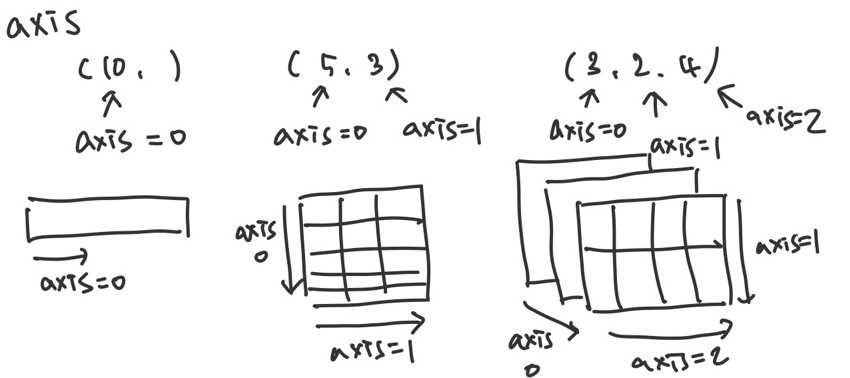 axis
(10, )
axis = 0
axis=0
(5, 3)
axis=0
axis=1
axis
0
axis=1
(3, 2, 4)
axis=0
axis=1
axis=2
axis=1
axis
0
axis=2